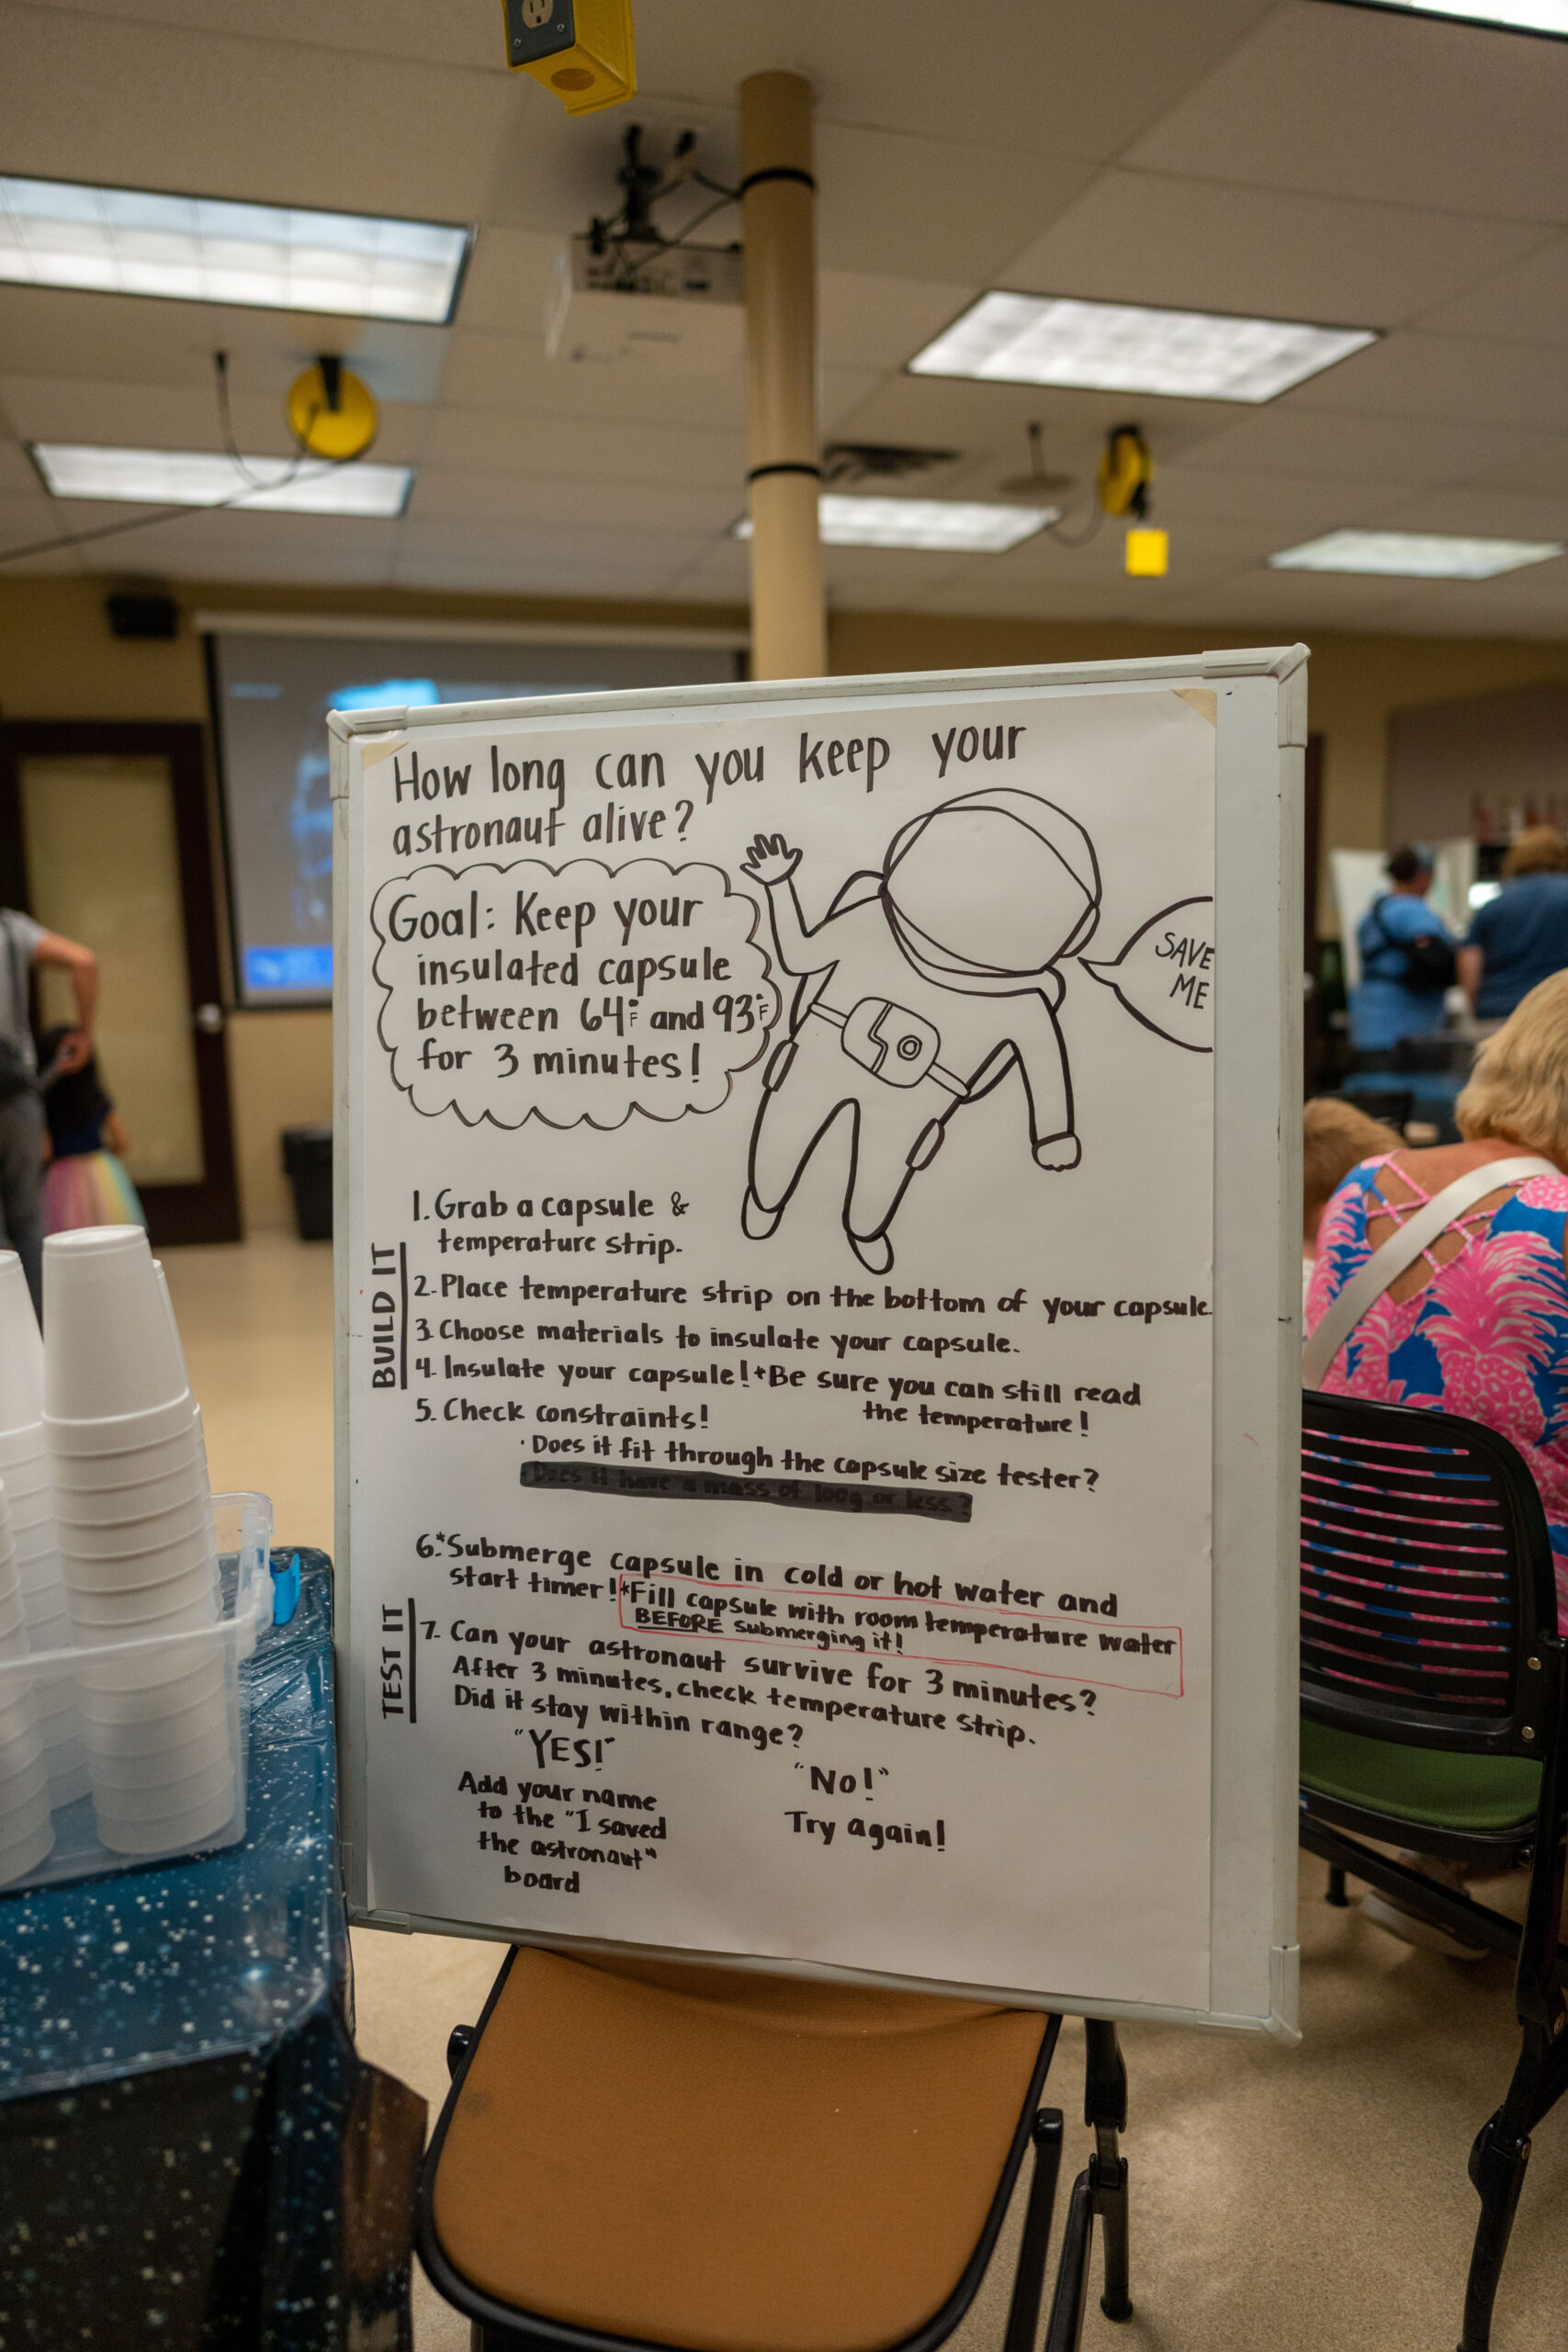 How long can you keep your
astronaut alive?
Goal: Keep your
insulated capsule
between 64°F and 93°F
for 3 minutes!
SAVE
ME
BUILD IT
1. Grab a capsule &
temperature strip.
2. Place temperature strip on the bottom of your capsule.
3. Choose materials to insulate your capsule.
4. Insulate your capsule! *Be sure you can still read
the temperature!
5. Check constraints!
· Does it fit through the capsule size tester?
· Does it have a mass of 100g or less?
TEST IT
6.*Submerge capsule in cold or hot water and
start timer! *Fill capsule with room temperature water
BEFORE submerging it!
7. Can your astronaut survive for 3 minutes?
After 3 minutes, check temperature strip.
Did it stay within range?
"YES!"
Add your name
to the "I saved
the astronaut"
board
"No!"
Try again!